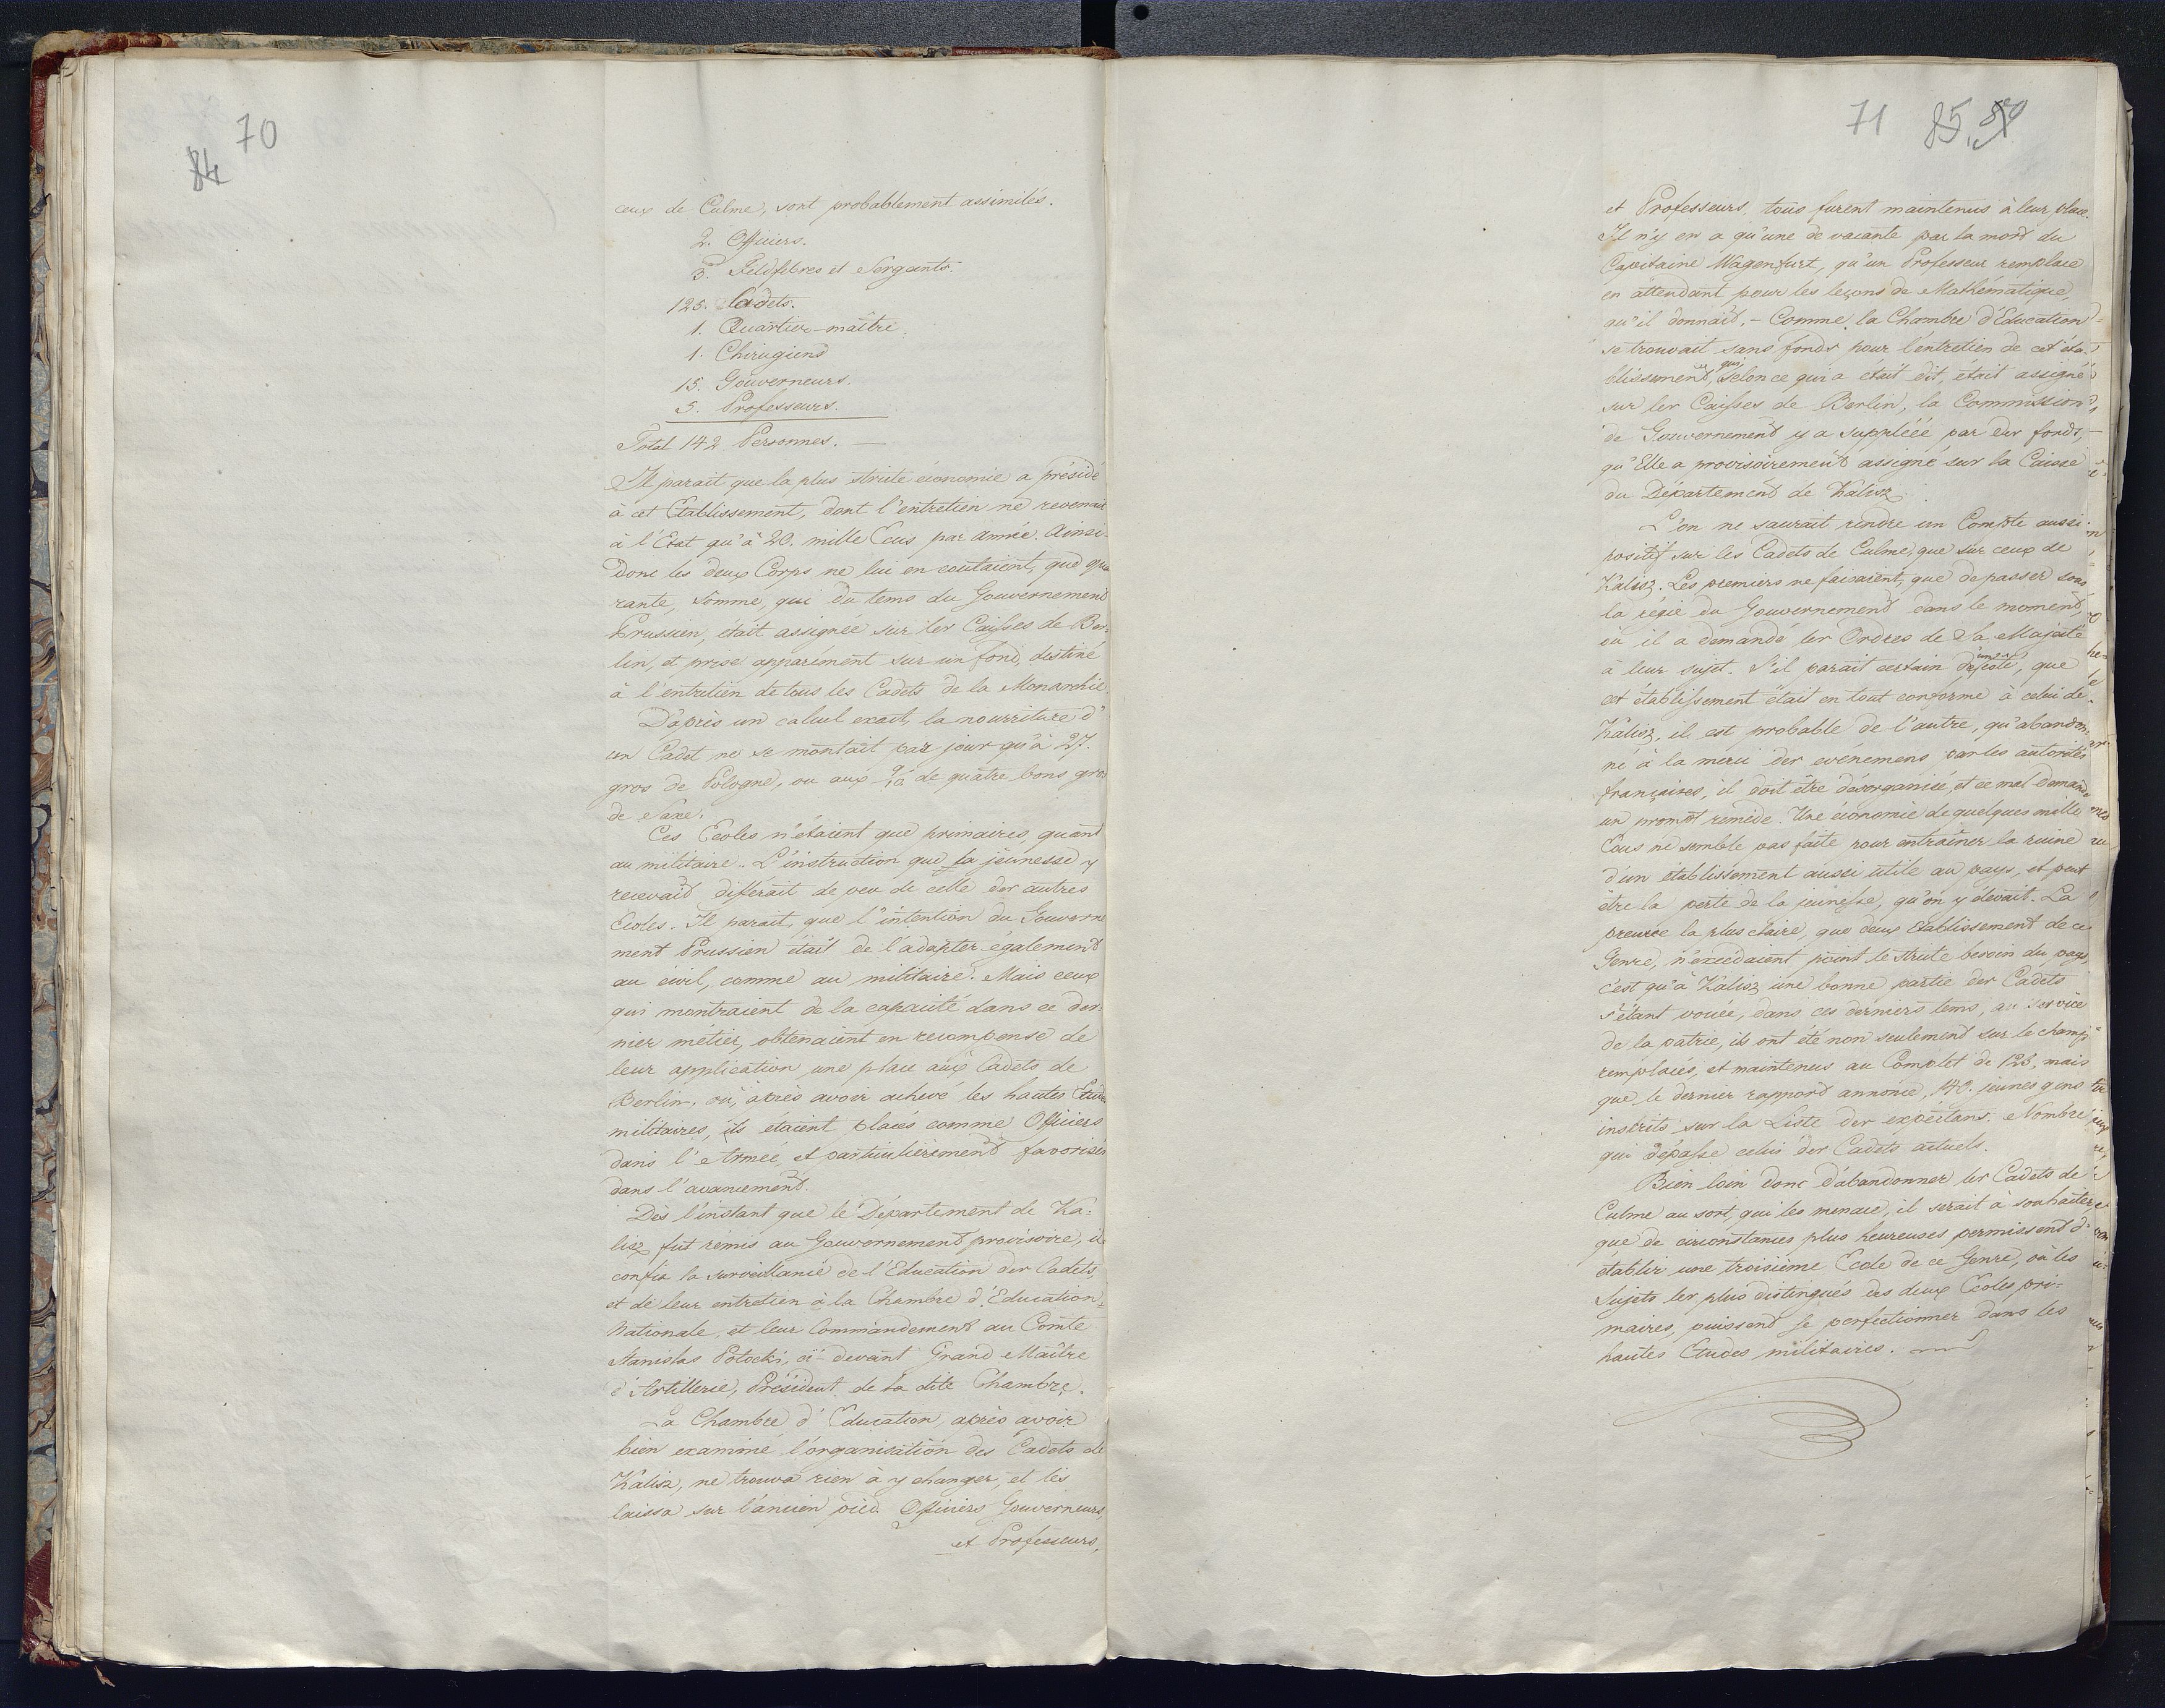 70
84
ceux de Culme, sont probablement assimilés.
2. Officiers.
3. Feldfebres et Sergants.
125. Cadets.
1. Quartier-maître.
1. Chirugiens
15. Gouverneurs.
5. Professeurs.
Total 142 Personnes. —
Il parait que la plus stricte économie a présidé
à cet Etablissement, dont l'entretien ne revenait
à l'Etat qu'à 20. mille Ecus par année. Ainsi
donc les deux Corps ne lui en coutaient, que qua
rante, somme, qui du tems du Gouvernement
Prussien, était assignée sur les Caisses de Ber-
lin, et prise apparément sur un fond, destiné
à l'entretien de tous les Cadets de la Monarchie.
D'après un calcul exact, la nourriture d'
un Cadet ne se montait par jour qu'à 27.
gros de Pologne, ou aux 9/10 de quatre bons gros
de Saxe.
Ces Ecoles n'étaient que primaires, quant
au militaire. L'instruction que la jeunesse y
recevait différait de peu de celle des autres
Ecoles. Il parait, que l'intention du Gouverne
ment Prussien était de l'adapter également
au civil, comme au militaire. Mais ceux
qui montraient de la capacité dans ce der-
nier métier, obtenaient en recompense de
leur application, une place aux Cadets de
Berlin, où, après avoir achevé les hautes Etudes
militaires, ils étaient placés comme Officiers
dans l'Armée, et particulièrement favorisés
dans l'avancement.
Dès l'instant que le Département de Ka-
lisz fut remis au Gouvernement provisoire, il
confia la surveillance de l'Education des Cadets,
et de leur entretien à la Chambre d'Education
Nationale, et leur Commandement au Comte
Stanislas Potocki, ci-devant Grand Maître
d'Artillerie, Président de la dite Chambre.
La Chambre d'Education, après avoir
bien examiné l'organisation des Cadets de
Kalisz, ne trouva rien à y changer, et les
laissa sur l'ancien pied. Officiers Gouverneurs,
et Professeurs,
71 85.
et Professeurs, tous furent maintenus à leur place.
Il n'y en a qu'une de vacante par la mort du
Capitaine Wagenfurt, qu'un Professeur remplace
en attendant pour les leçons de Mathématique,
qu'il donnait. — Comme la Chambre d'Education
se trouvait sans fonds pour l'entretien de cet éta-
blissement, qui selon ce qui a était dit, était assigné
sur les Caisses de Berlin, la Commission
de Gouvernement y a suppléée par des fonds,
qu'Elle a provisoirement assigné sur la Caisse
du Département de Kalisz.
L'on ne saurait rendre un Compte aussi
positif sur les Cadets de Culme, que sur ceux de
Kalisz. Les premiers ne faisaient, que de passer sous
la régie du Gouvernement dans le moment,
où il a demandé les Ordres de Sa Majesté
à leur sujet. S'il parait certain d'un coté, que
cet établissement était en tout conforme à celui de
Kalisz, il est probable de l'autre, qu'abandon-
né à la merci des evénemens par les autorités
françaises, il doit être désorganisé, et ce mal demande
un prompt remède. Une économie de quelques mille
Ecus ne semble pas faite pour entraîner la ruine
d'un établissement aussi utile au pays, et peut
être la perte de la jeunesse, qu'on y élevait. La
preuve la plus claire, que deux Etablissement de ce
Genre, n'excédaient point le stricte besoin du pays,
c'est qu'à Kalisz une bonne partie des Cadets
s'étant vouée, dans ces derniers tems, au service
de la patrie, ils ont été non seulement sur le champ
remplacés, et maintenus au Complet de 125, mais
que le dernier rapport annonce, 140. jeunes gens
inscrits sur la Liste des expectans. Nombre
qui dépasse celui des Cadets actuels.
Bien loin donc d'abandonner les Cadets de
Culme au sort, qui les menace, il serait à souhaiter
que de circonstances plus heureuses permissent d'
établir une troisième Ecole de ce Genre, où les
Sujets les plus distingués des deux Ecoles pri-
maires, puissent se perfectionner dans les
hautes Etudes militaires.